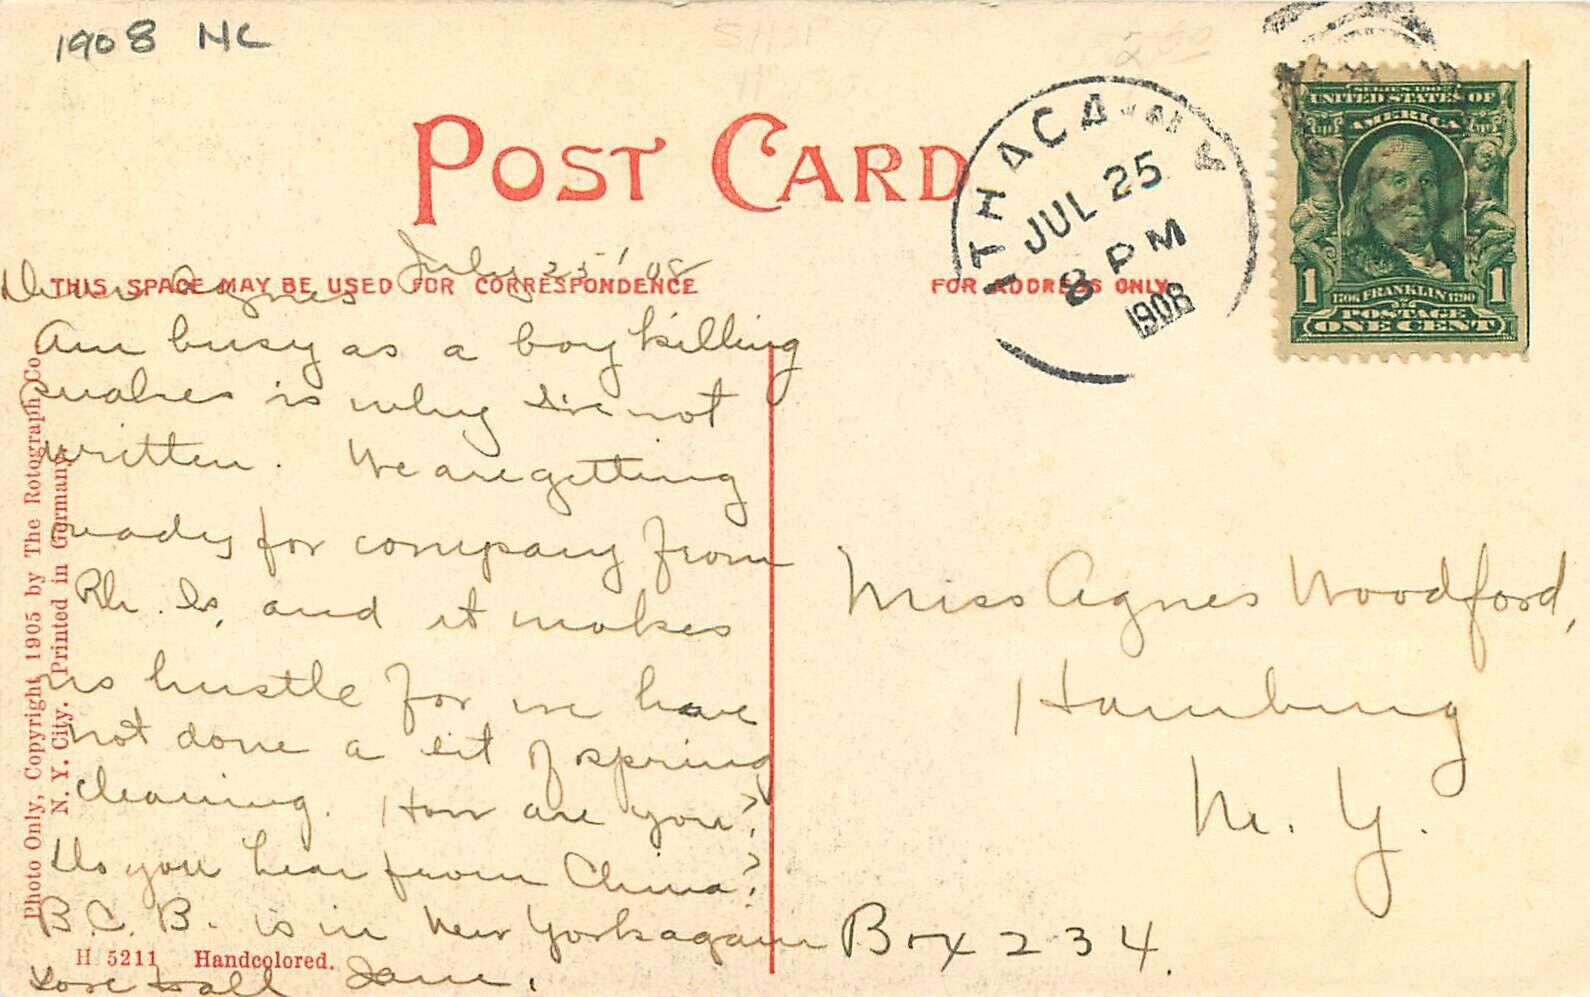 1908 NC
POST CARD
ITHACA, N.Y.
JUL 25
8 PM
1908
SERIES 1902
UNITED STATES OF
AMERICA
1 1706 FRANKLIN 1790 1
POSTAGE
ONE CENT
THIS SPACE MAY BE USED FOR CORRESPONDENCE
FOR ADDRESS ONLY
July 25 '08
Dear Agnes
Am busy as a boy killing
snakes is why I've not
written. We are getting
ready for company from
Rh. Is, and it makes
us hustle for we have
not done a bit of spring
cleaning. How are you?
Do you hear from China?
B.C.B. is in New York again
Love to all Jane.
Miss Agnes Woodford,
Hamburg
N. Y.
Box 234.
Photo Only, Copyright 1905 by The Rotograph Co.
N. Y. City. Printed in Germany
H 5211 Handcolored.